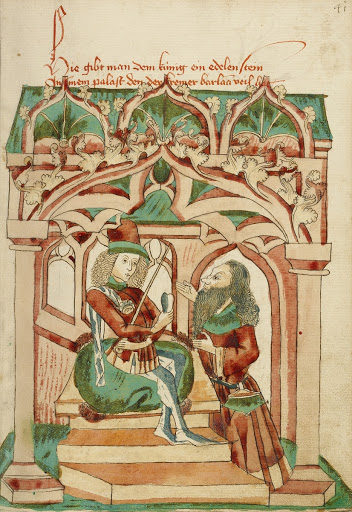 41
Hie gibt man dem künig ein edelen stein
In sinem palast den der kremer barlaam veil